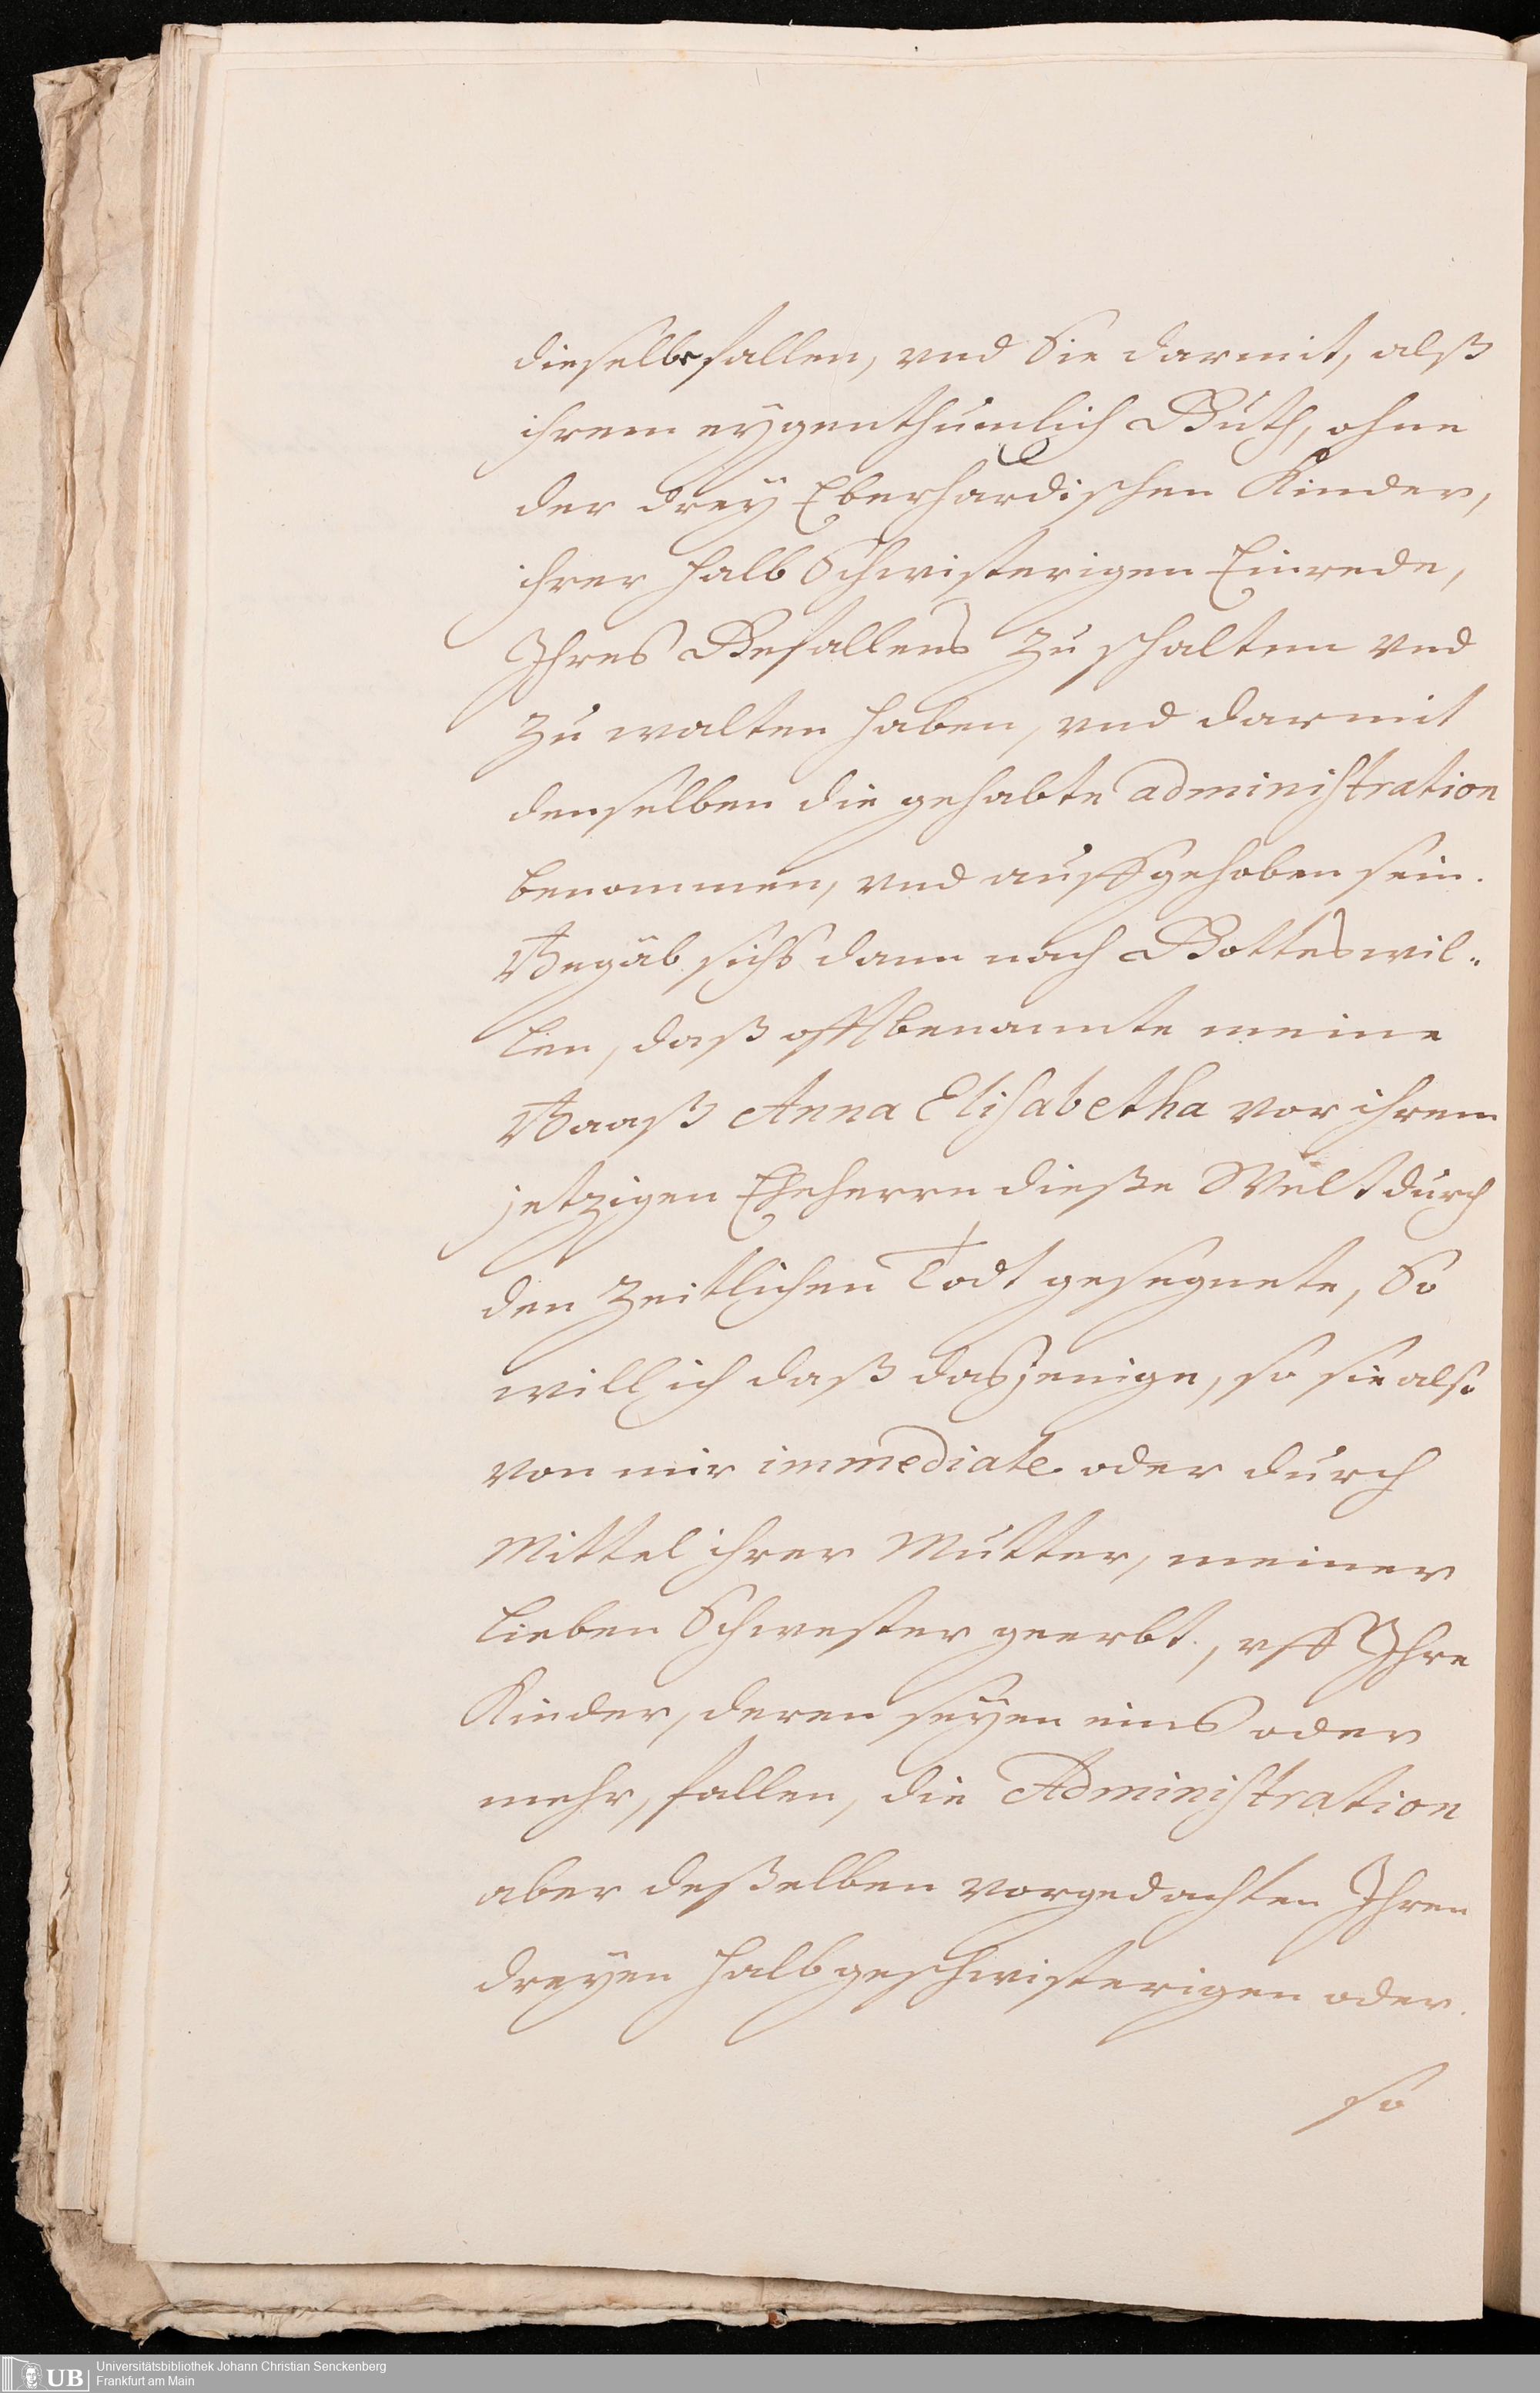 dieselbe fallen, vnd Sie darmit, alß
ihrem eygenthumlich Guth, ohne
der drey Eberhardischen Kinder,
ihrer halb Schwisterigen Einrede,
Ihres Gefallens zu schalten vnd
zu walten haben, vnd darmit
denselben die gehabte administration
benommen, vnd auffgehoben sein.
Begäb sichs dann nach Gottes wil¬
len, daß offtbenannte meine
Baaß Anna Elisabetha vor ihrem
jetzigen Eheherrn dieße Welt durch
den zeitlichen Todt gesegnete, So
will ich daß dasjenige, so sie also
von mir immediate oder durch
Mittel ihrer Mutter, meiner
lieben Schwester geerbt, vff Ihre
Kinder, deren seyen eins oder
mehr, fallen, die Administration
aber deßelben vorgedachten Ihren
dreyen halbgeschwisterigen oder
so
UB
Universitätsbibliothek Johann Christian Senckenberg
Frankfurt am Main